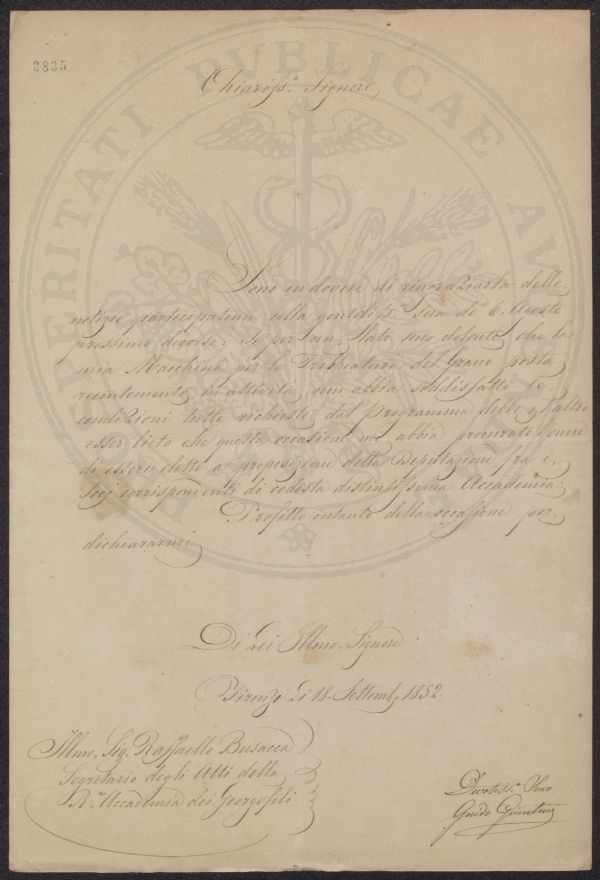 2835
Chiariss.o Signore
Sono in dovere di ringraziarla delle
notizie partecipatemi colla gentiliss.a Sua de' 6. Agosto
prossimo decorso; Se per un lato sono dolente che la
mia Macchina per la Tribbiatura del Grano posta
recentemente in attività non abbia soddisfatto le
condizioni tutte richieste dal Programma debbo d'altro
esser lieto che questa occasione mi abbia procurato l'onere
di essere eletto a proposizione della Deputazione fra i
Socj corrispondenti di codesta distintissima Accademia.
Profitto intanto della occasione per
dichiararmi
Di Lei Illmo. Signore
Firenze Li 18. Settemb. 1852
Illmo. Sig. Raffaelle Busacca
Segretario degli Atti della
R.e Accademia dei Georgofili
Devotiss.o Servo
Guido Giuntini
PROSPERITATI PUBLICAE AU